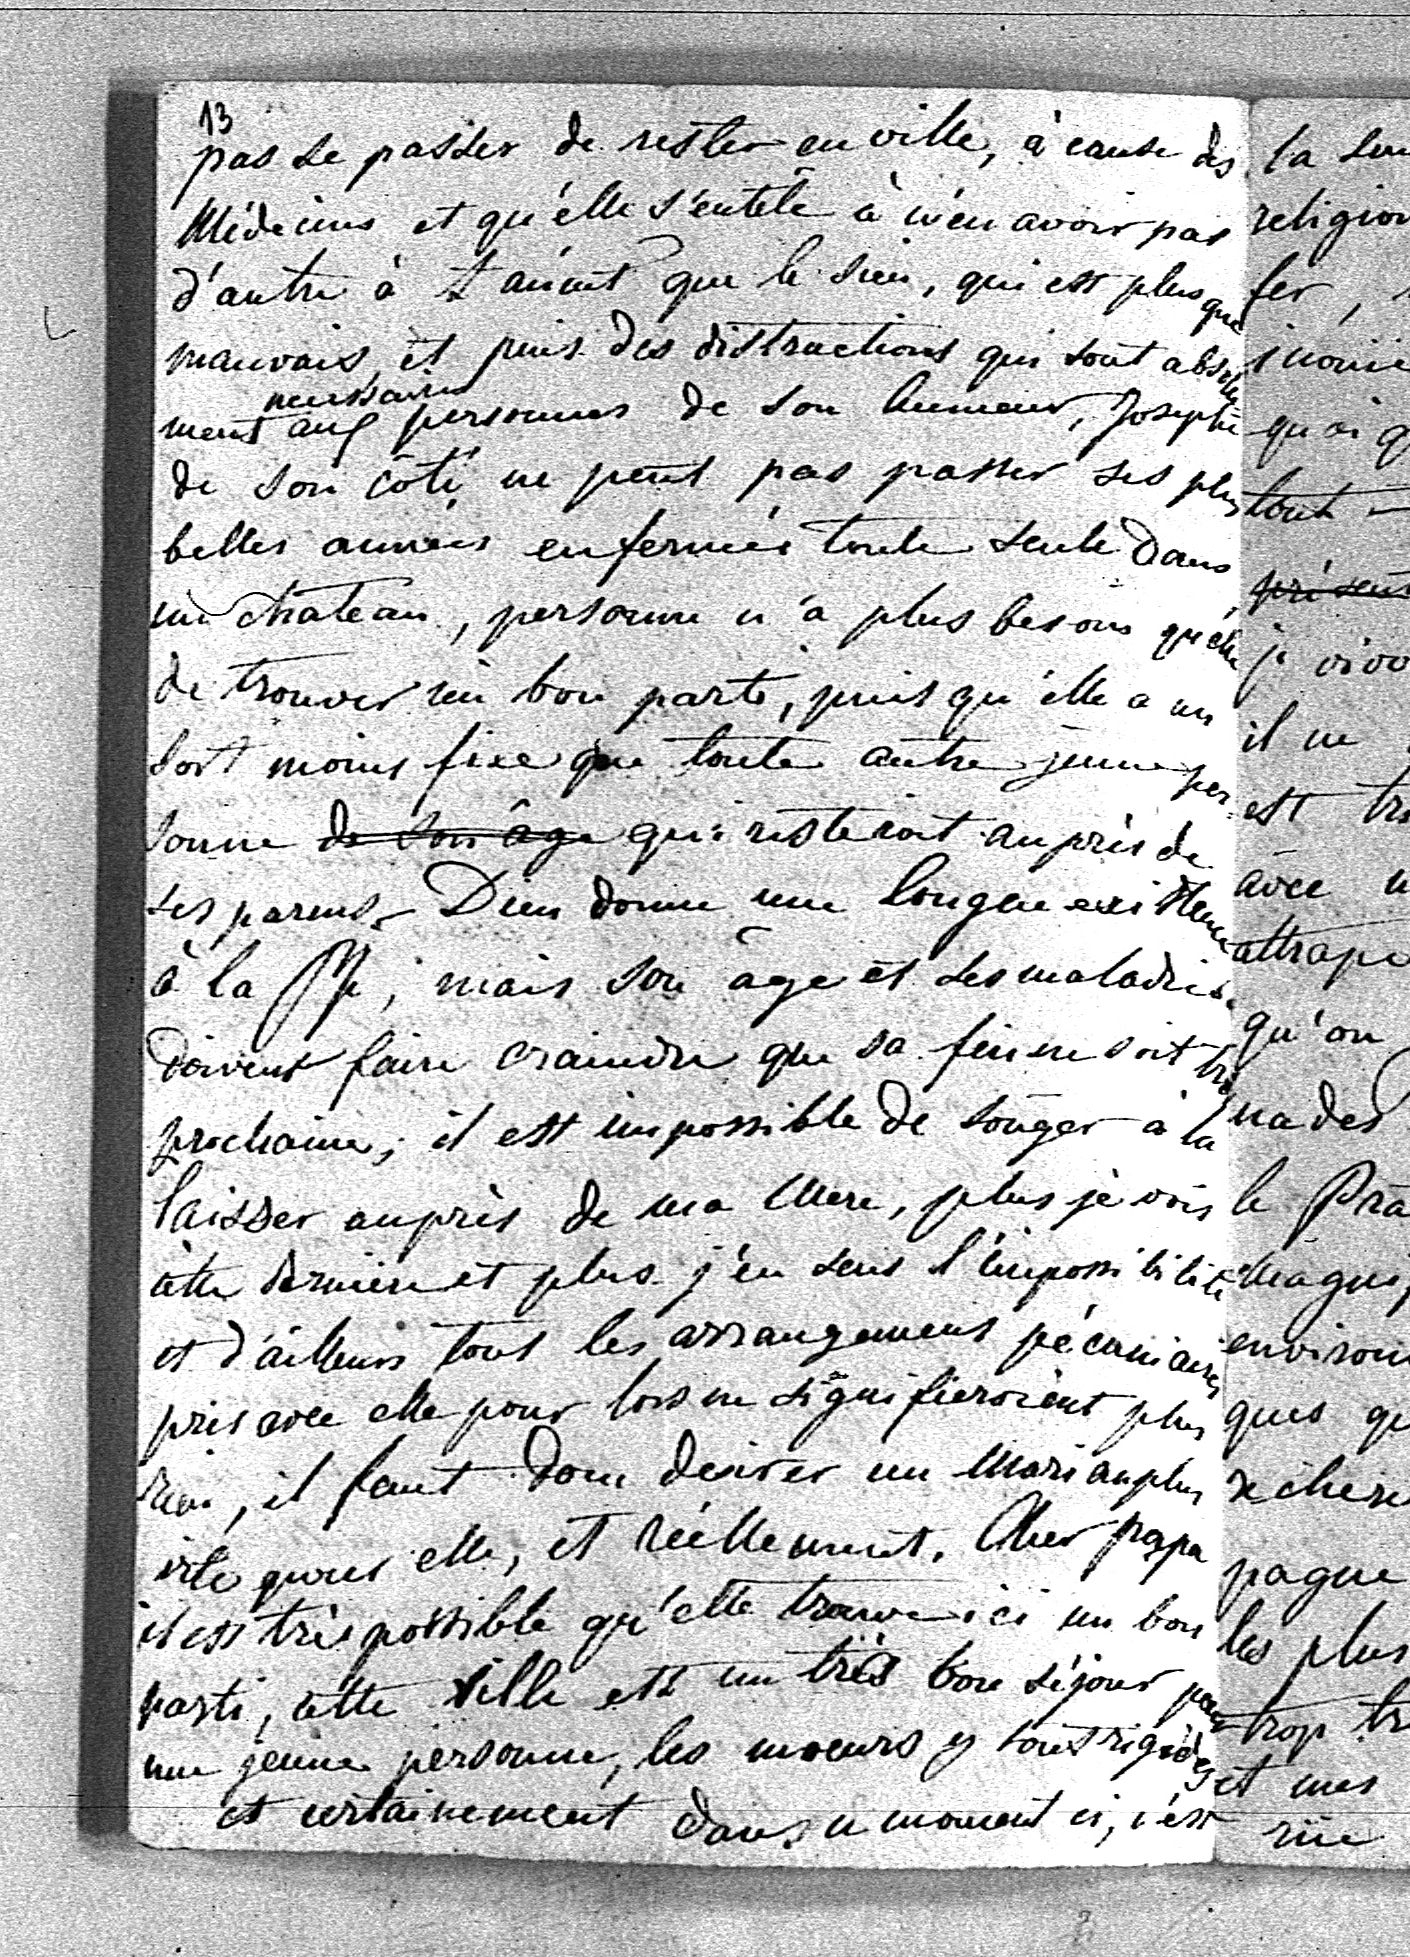 13
pas se passer de rester en ville, à cause des
Médecins et qu'elle s'entête à n'en avoir pas
d'autre à que le sien, qui est plus que
mauvais, et puis des distractions qui sont absolu
necessaires
ment aux personnes de son humeur, Josephe
de son côté ne peut pas passer ses plus
belles années enfermée toute seule dans
un chateau, personne n'a plus besoin qu'elle
de trouver un bon parti, puis qu'elle a un
sort moins fixe que toute autre jeune per-
sonne de son âge qui resteroit auprès de
ses parens. Dieu donne une longue existence
à la ; mais son âge et ses maladies
doivent faire craindre que sa fin ne soit très
prochaine; il est impossible de songer à la
laisser auprès de ma Mere, plus je vois
cette derniere et plus j'en sens l'impossibilité
et d'ailleurs tous les arrangemens pécuniaires
pris avec elle pour lors ne signifieroient plus
rien, il faut donc desirer un Mari au plus
vite pour elle, et réellement, Cher papa
il est très possible qu'elle trouve ici un bon
parti, cette ville est un très bon séjour pour
une jeune personne, les moeurs y sont rigides
et certainement dans ce moment ci, c'est
religion
fer,
quoi
tout
présent
il ne
est
avec
attrape
qu'on
nades
le
ques
pagne
les plus
trop
et mes